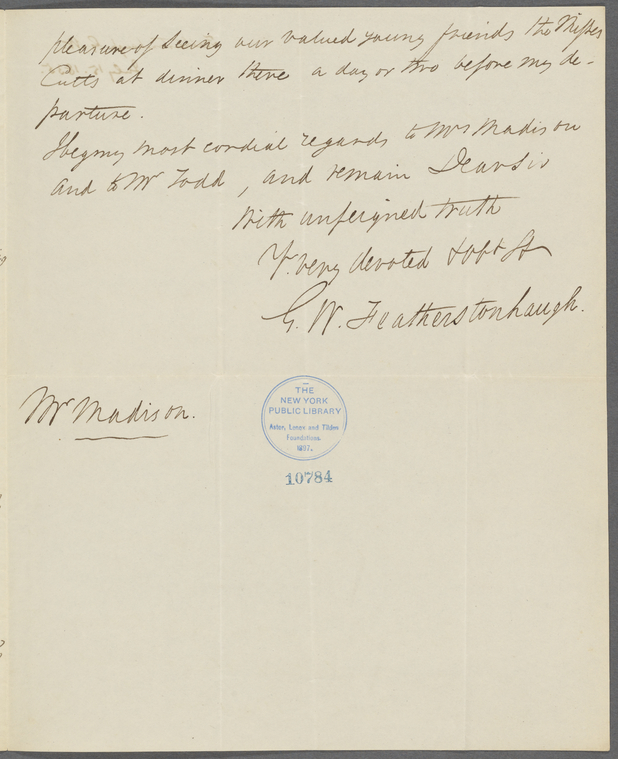 pleasure of seeing our valued young friends the Misses
Cutts at dinner there a day or two before my de-
parture.
I beg my most cordial regards to Mrs Madison
and to Mr Todd, and remain Dear Sir
With unfeigned truth
Yr. very devoted & obt St
G. W. Featherstonhaugh.
Mr Madison.
THE
NEW YORK
PUBLIC LIBRARY
Astor, Lenox and Tilden
Foundations.
1897.
10784